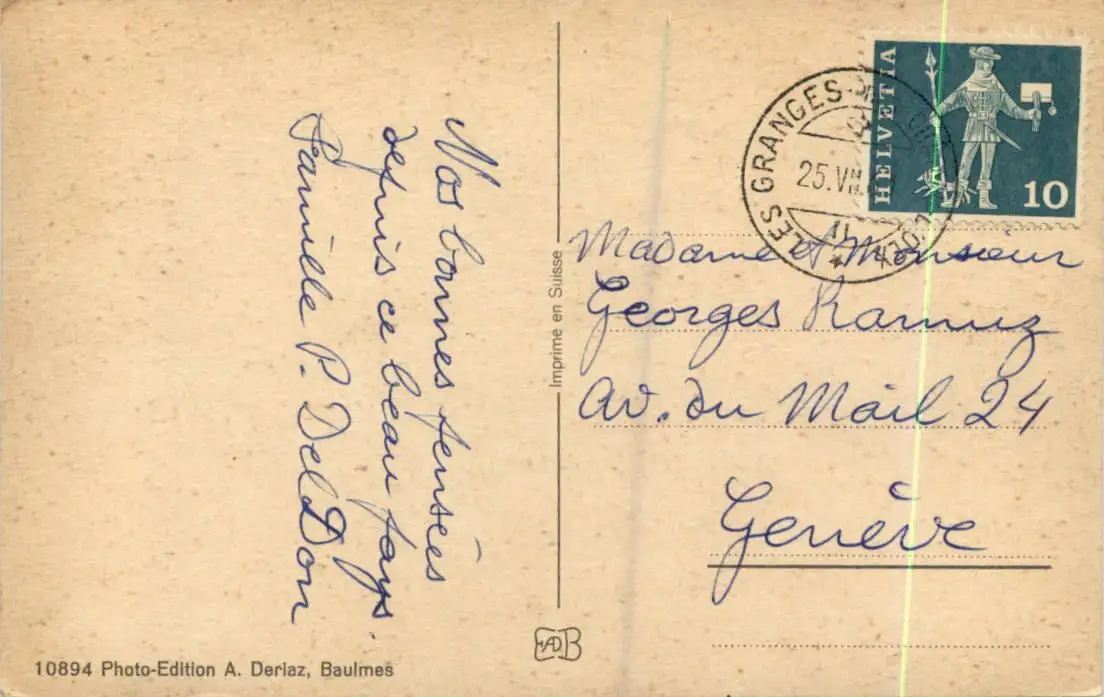 Nos bonnes pensées
depuis ce beau pays.
Famille P. DelDon
Imprime en Suisse
10894 Photo-Edition A. Deriaz, Baulmes
HELVETIA
10
LES GRANGES
25.VII
Madame et Monsieur
Georges Ramuz
Av. du Mail 24
Genève